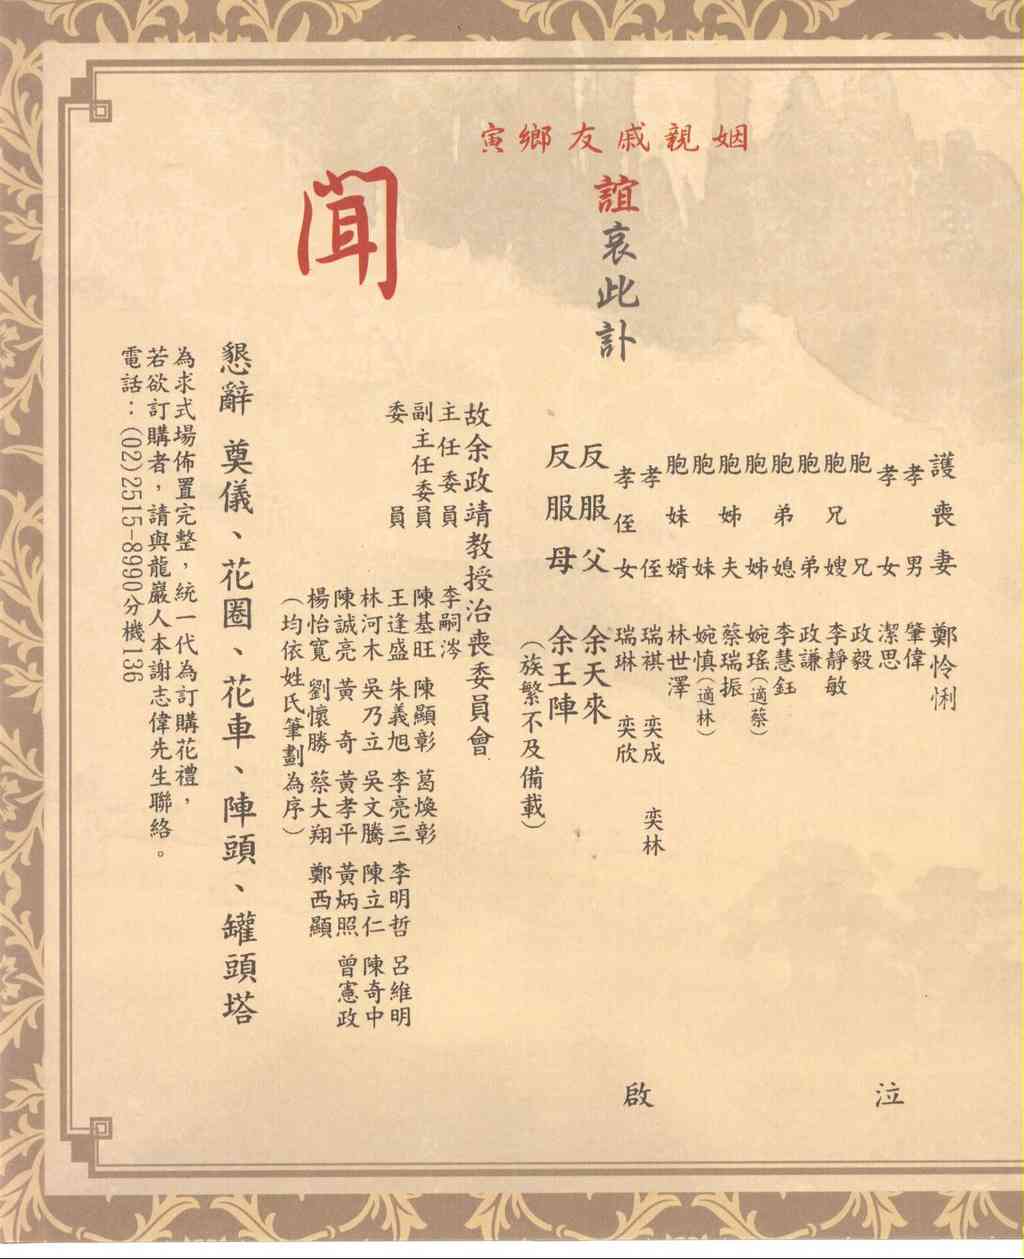 姻親戚友鄉寅
誼哀此訃
聞
護喪妻 鄭怜悧
孝男 肇偉
孝女 潔思
胞兄 政毅
胞兄嫂 李靜敏
胞弟 政謙
胞弟媳 李慧鈺
胞姊 婉瑤(適蔡)
胞姊夫 蔡瑞振
胞妹 婉慎(適林)
胞妹婿 林世澤
孝侄 瑞祺 奕成 奕林
孝侄女 瑞琳 奕欣
反服父 余天來
反服母 余王陣
(族繁不及備載)
泣啟
故余政靖教授治喪委員會
主任委員 李嗣涔
副主任委員 陳基旺 陳顯彰 葛煥彰
委員 王逢盛 朱義旭 李亮三 李明哲 呂維明
林河木 吳乃立 吳文騰 陳立仁 陳奇中
陳誠亮 黃奇 黃孝平 黃炳照 曾憲政
楊怡寬 劉懷勝 蔡大翔 鄭西顯
(均依姓氏筆劃為序)
懇辭 奠儀、花圈、花車、陣頭、罐頭塔
為求式場佈置完整，統一代為訂購花禮，
若欲訂購者，請與龍巖人本謝志偉先生聯絡。
電話：(02)2515-8990分機136